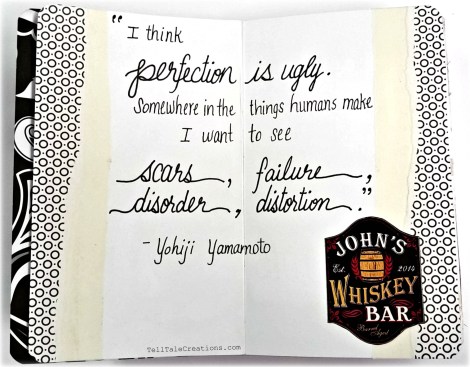 "I think
perfection is ugly.
Somewhere in the things humans make
I want to see
scars, failure,
disorder, distortion."
- Yohiji Yamamoto
JOHN'S
Est. 2014
WHISKEY
BAR
Barrel Aged
TellTaleCreations.com